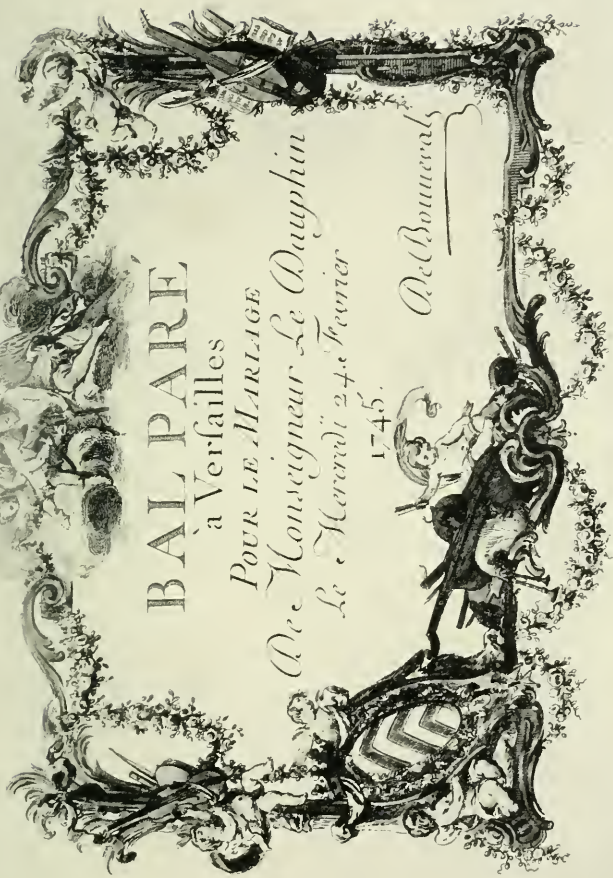 BAL PARÉ
à Verſailles
POUR LE MARIAGE
De Monseigneur Le Dauphin
Le Mercredi 24.e Fevrier
1745.
De Bonneval